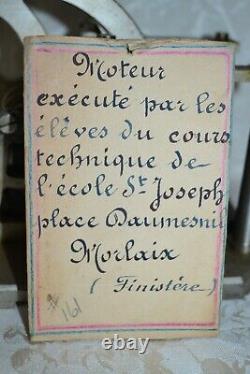 Moteur
exécuté par les
élèves du cours
technique de
l'école St Joseph
place Daumesnil
Morlaix
( Finistére )
# 161